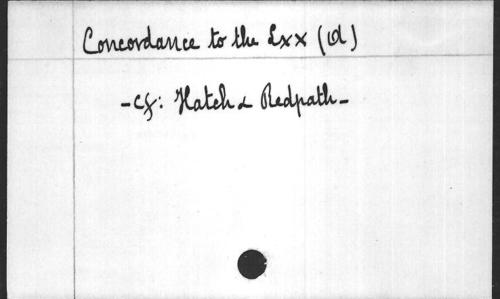 Concordance to the Lxx (Ol)
- cf: Hatch & Redpath -